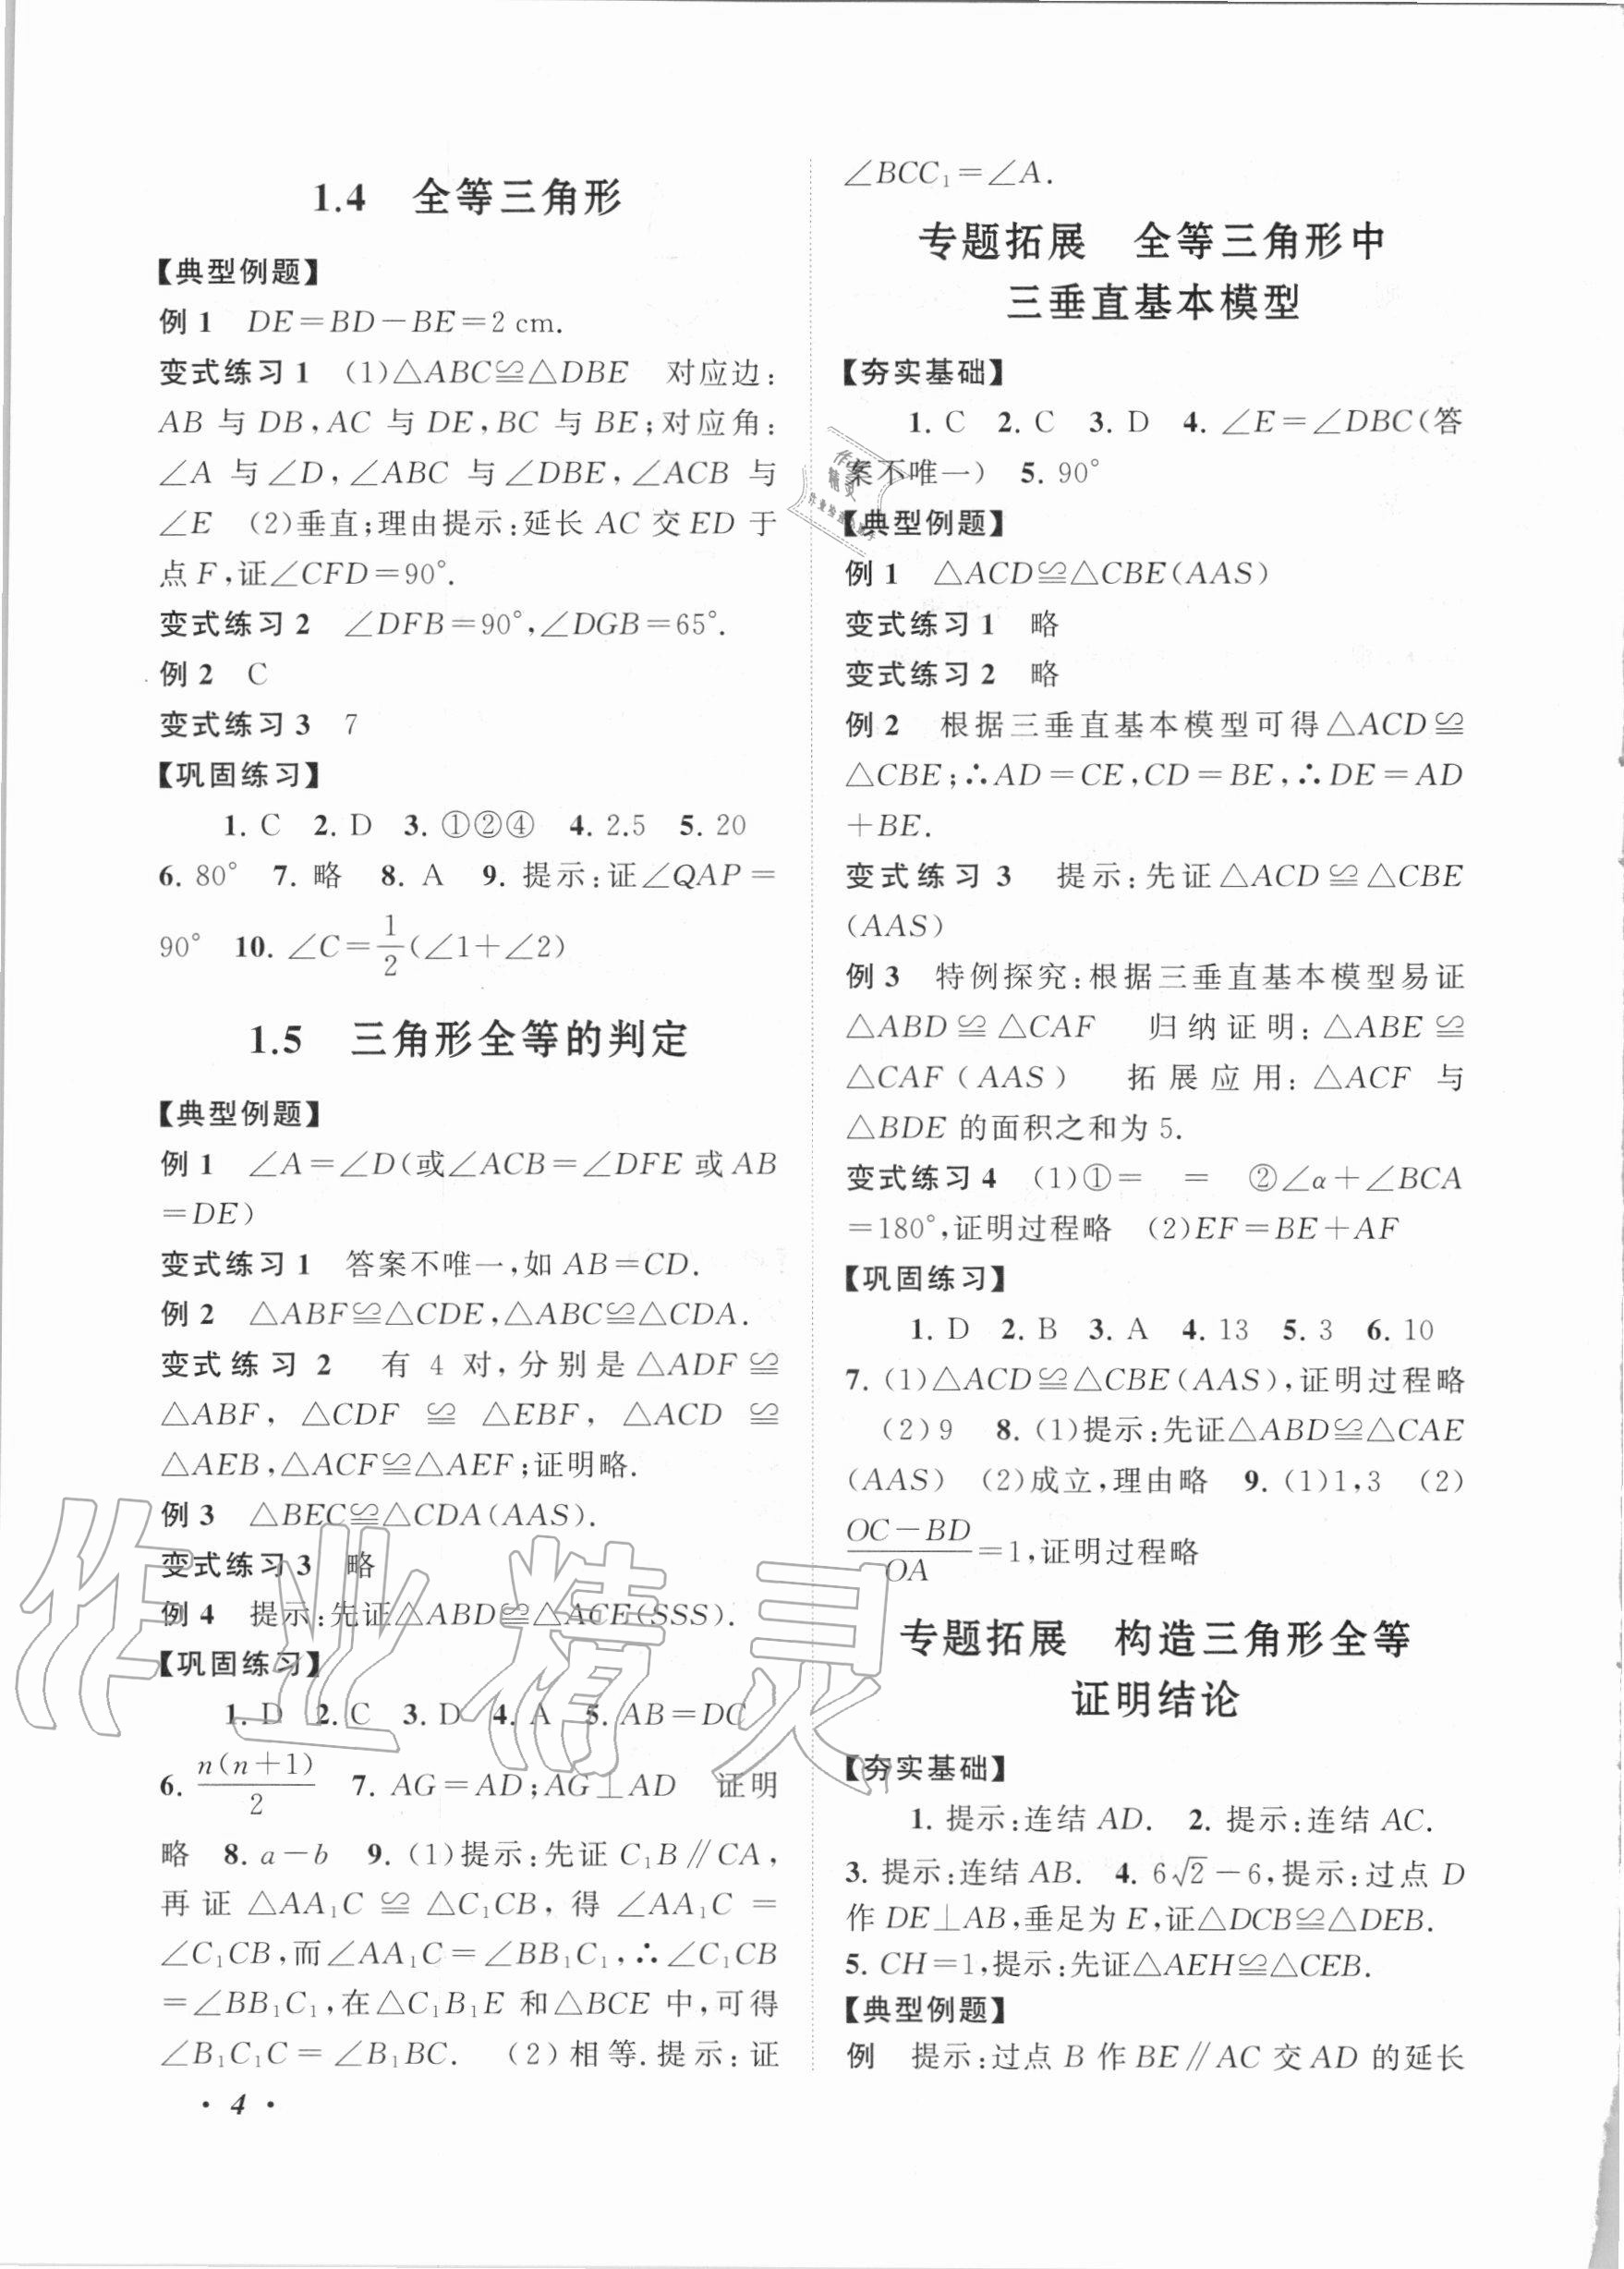 1.4 全等三角形
【典型例题】
例 1 DE=BD-BE=2 cm.
变式练习 1 (1)△ABC≌△DBE 对应边:
AB 与 DB,AC 与 DE,BC 与 BE;对应角:
∠A 与∠D,∠ABC 与∠DBE,∠ACB 与
∠E (2)垂直;理由提示:延长 AC 交 ED 于
点 F,证∠CFD=90°.
变式练习 2 ∠DFB=90°,∠DGB=65°.
例 2 C
变式练习 3 7
【巩固练习】
1. C 2. D 3. ①②④ 4. 2.5 5. 20
6. 80° 7. 略 8. A 9. 提示:证∠QAP=
90° 10. ∠C=1/2(∠1+∠2)
1.5 三角形全等的判定
【典型例题】
例 1 ∠A=∠D(或∠ACB=∠DFE 或 AB
=DE)
变式练习 1 答案不唯一,如 AB=CD.
例 2 △ABF≌△CDE,△ABC≌△CDA.
变式练习 2 有 4 对,分别是△ADF≌
△ABF, △CDF ≌ △EBF, △ACD ≌
△AEB,△ACF≌△AEF;证明略.
例 3 △BEC≌△CDA(AAS).
变式练习 3 略
例 4 提示:先证△ABD≌△ACE(SSS).
【巩固练习】
1. D 2. C 3. D 4. A 5. AB=DC
6. n(n+1)/2 7. AG=AD;AG⊥AD 证明
略 8. a-b 9. (1)提示:先证 C₁B∥CA,
再证 △AA₁C ≌ △C₁CB, 得 ∠AA₁C =
∠C₁CB,而∠AA₁C=∠BB₁C₁,∴∠C₁CB
=∠BB₁C₁,在△C₁B₁E 和△BCE 中,可得
∠B₁C₁C=∠B₁BC. (2)相等.提示:证
· 4 ·
∠BCC₁=∠A.
专题拓展 全等三角形中
三垂直基本模型
【夯实基础】
1. C 2. C 3. D 4. ∠E=∠DBC(答
案不唯一) 5. 90°
【典型例题】
例 1 △ACD≌△CBE(AAS)
变式练习 1 略
变式练习 2 略
例 2 根据三垂直基本模型可得△ACD≌
△CBE;∴AD=CE,CD=BE,∴DE=AD
+BE.
变式练习 3 提示:先证△ACD≌△CBE
(AAS)
例 3 特例探究:根据三垂直基本模型易证
△ABD≌△CAF 归纳证明:△ABE≌
△CAF(AAS) 拓展应用:△ACF 与
△BDE 的面积之和为 5.
变式练习 4 (1)①= = ②∠α+∠BCA
=180°,证明过程略 (2)EF=BE+AF
【巩固练习】
1. D 2. B 3. A 4. 13 5. 3 6. 10
7. (1)△ACD≌△CBE(AAS),证明过程略
(2)9 8. (1)提示:先证△ABD≌△CAE
(AAS) (2)成立,理由略 9. (1)1,3 (2)
(OC-BD)/OA=1,证明过程略
专题拓展 构造三角形全等
证明结论
【夯实基础】
1. 提示:连结 AD. 2. 提示:连结 AC.
3. 提示:连结 AB. 4. 6√2-6,提示:过点 D
作 DE⊥AB,垂足为 E,证△DCB≌△DEB.
5. CH=1,提示:先证△AEH≌△CEB.
【典型例题】
例 提示:过点 B 作 BE∥AC 交 AD 的延长
作业精灵